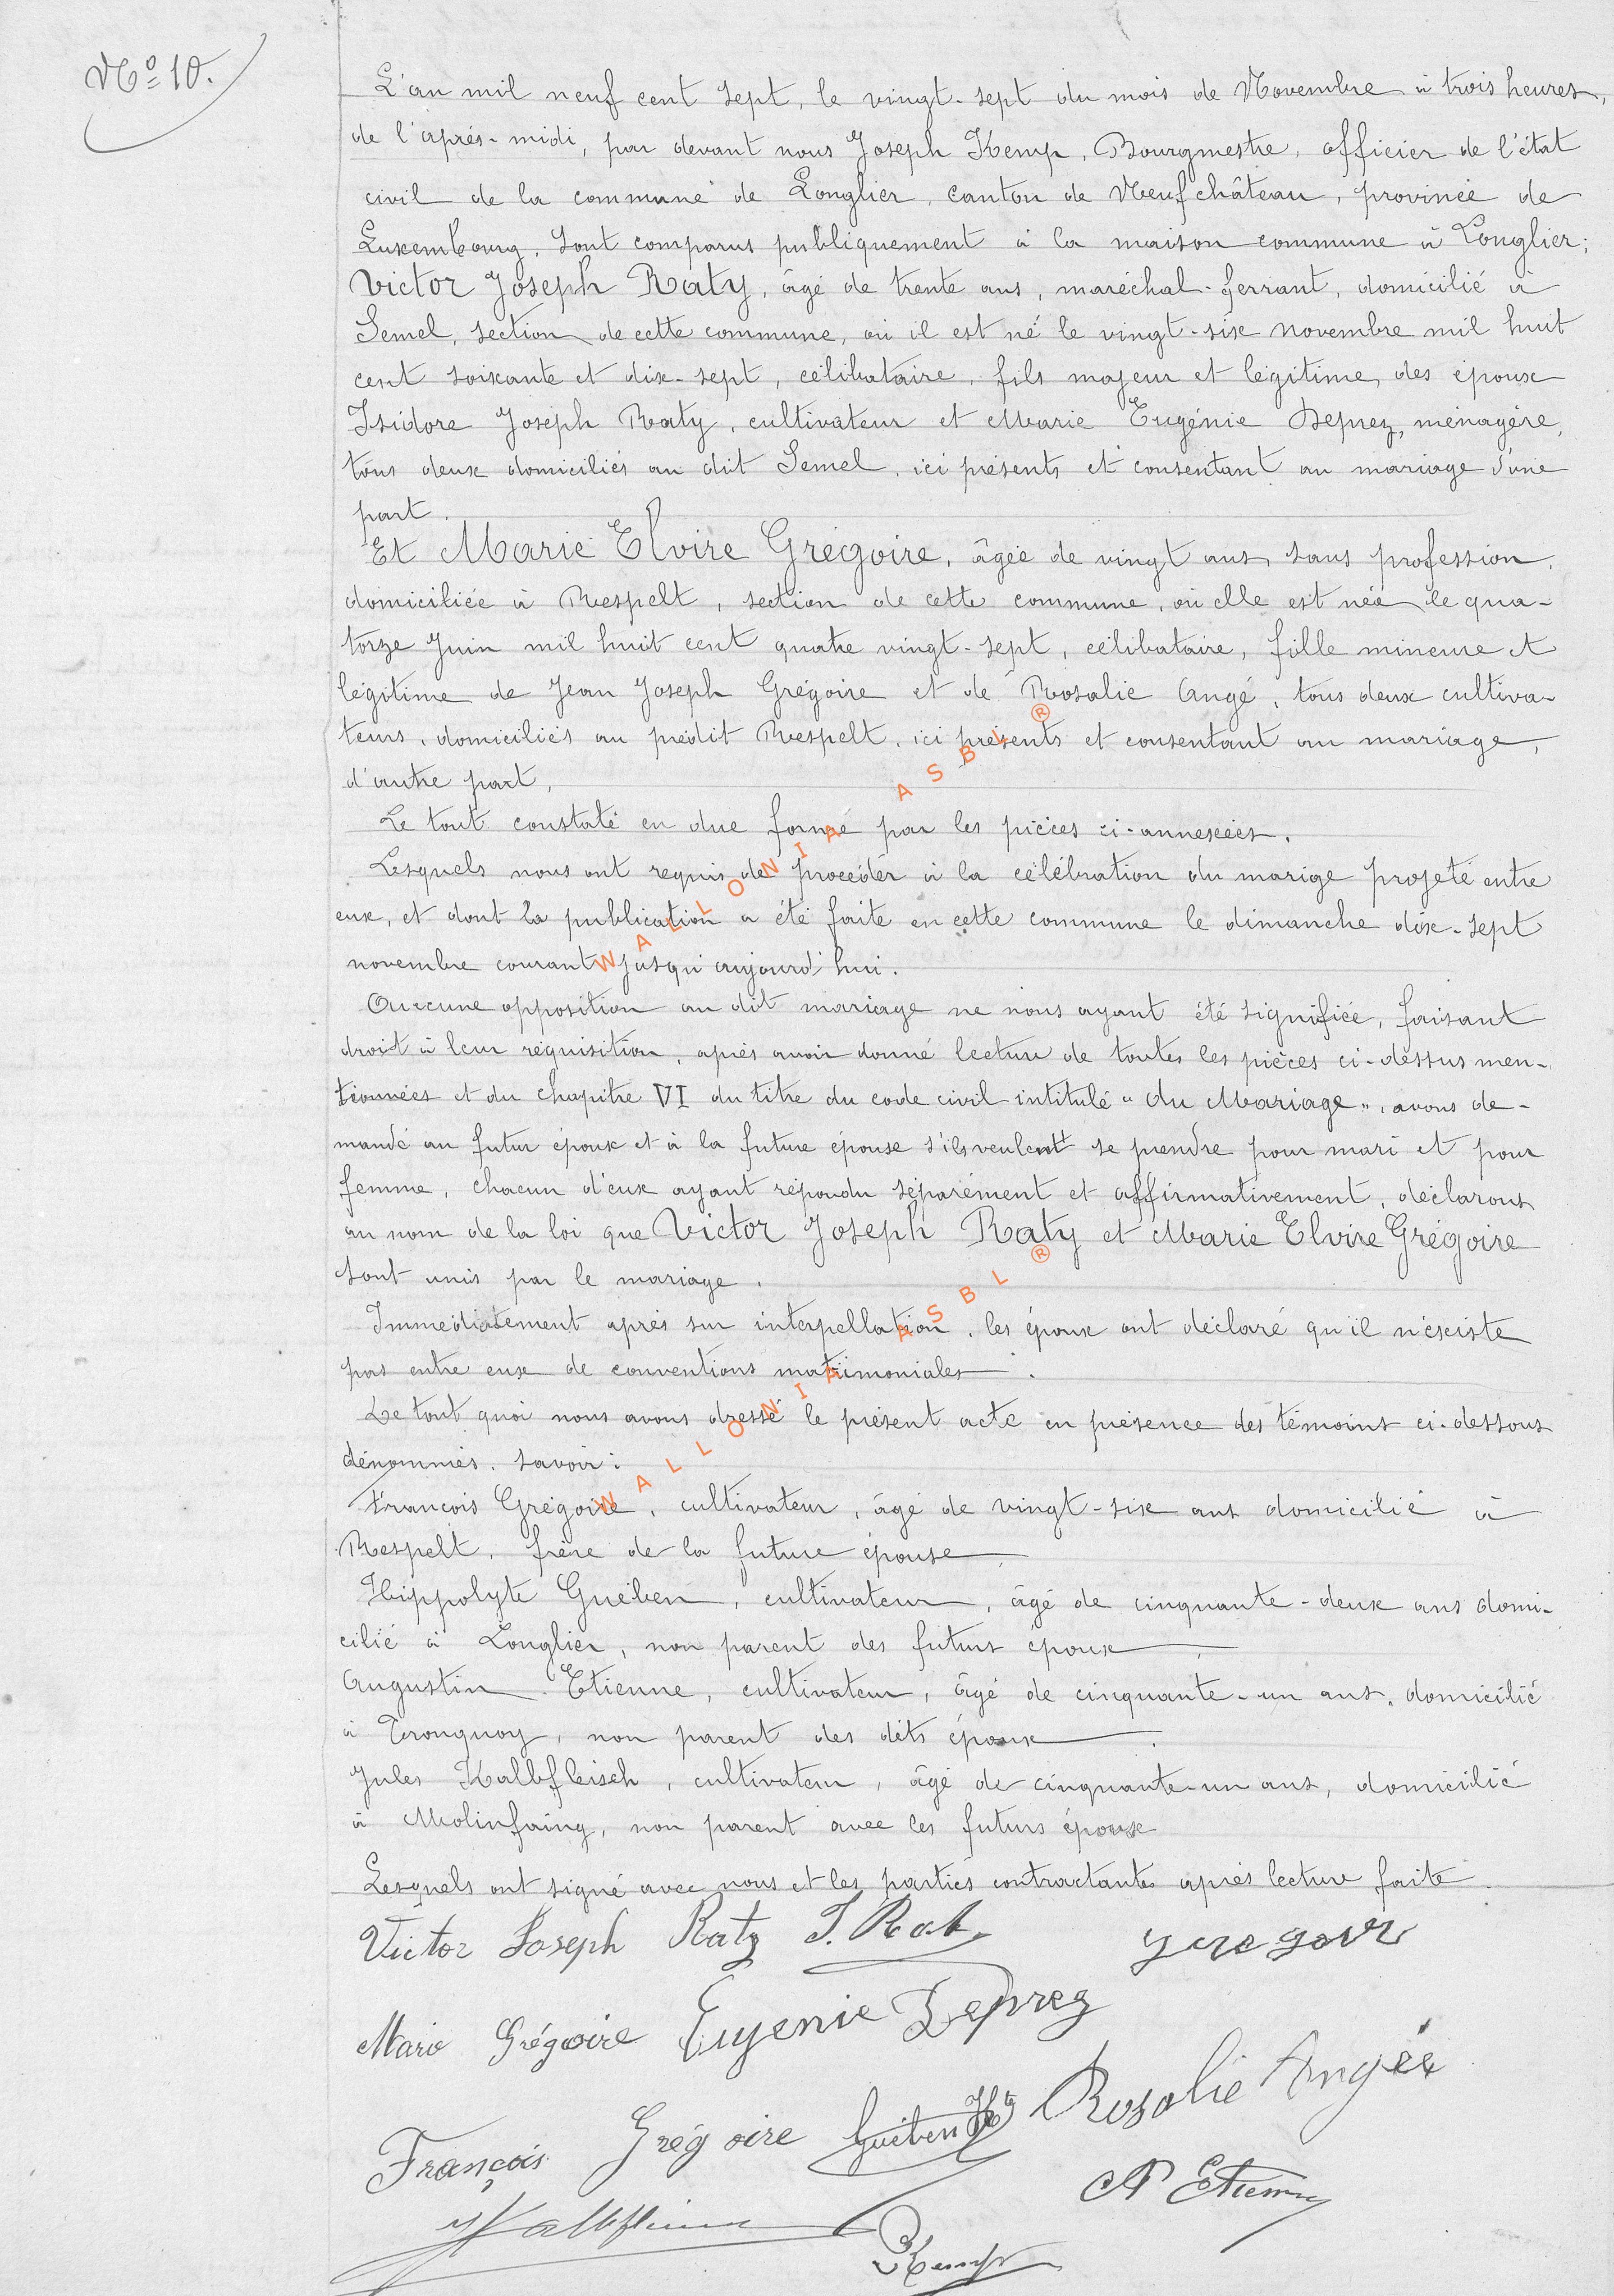 No 10.
L'an mil neuf cent sept, le vingt-sept du mois de Novembre à trois heures,
de l'après-midi, par devant nous Joseph Kemp, Bourgmestre, officier de l'état
civil de la commune de Longlier, canton de Neufchâteau, province de
Luxembourg, sont comparus publiquement à la maison commune à Longlier;
Victor Joseph Raty, âgé de trente ans, maréchal-ferrant, domicilié à
Semel, section de cette commune, où il est né le vingt-six novembre mil huit
cent soixante et dix-sept, célibataire, fils majeur et légitime des époux
Isidore Joseph Raty, cultivateur et Marie Eugénie Deprez, ménagère,
tous deux domiciliés au dit Semel, ici présents et consentant au mariage d'une
part.
Et Marie Elvire Grégoire, âgée de vingt ans, sans profession,
domiciliée à Respelt, section de cette commune, où elle est née le qua-
torze Juin mil huit cent quatre vingt-sept, célibataire, fille mineure et
légitime de Jean Joseph Grégoire et de Rosalie Angé, tous deux cultiva-
teurs, domiciliés au prédit Respelt, ici présents et consentant au mariage,
d'autre part,
Le tout constaté en due forme par les pièces ci-annexées.
Lesquels nous ont requis de procéder à la célébration du marige projeté entre
eux, et dont la publication a été faite en cette commune le dimanche dix-sept
novembre courant jusqu'aujourd'hui.
Aucune opposition au dit mariage ne nous ayant été signifiée, faisant
droit à leur réquisition, après avoir donné lecture de toutes les pièces ci-dessus men-
tionnées et du chapitre VI du titre du code civil intitulé "du Mariage", avons de-
mandé au futur époux et à la future épouse s'ils veulent se prendre pour mari et pour
femme, chacun d'eux ayant répondu séparément et affirmativement, déclarons
au nom de la loi que Victor Joseph Raty et Marie Elvire Grégoire
sont unis par le mariage.
Immédiatement après sur interpellation, les époux ont déclaré qu'il n'existe
pas entre eux de conventions matrimoniales.
De tout quoi nous avons dressé le présent acte en présence des témoins ci-dessous
dénommés, savoir:
François Grégoire, cultivateur, âgé de vingt-six ans domicilié à
Respelt, frère de la future épouse,
Hippolyte Guében, cultivateur, âgé de cinquante-deux ans domi-
cilié à Longlier, non parent des futurs époux,
Augustin Etienne, cultivateur, âgé de cinquante-un ans, domicilié
à Tronquoy, non parent des dits époux.
Jules Kalbfleisch, cultivateur, âgé de cinquante-un ans, domicilié
à Molinfaing, non parent avec les futurs époux
Lesquels ont signé avec nous et les parties contractantes après lecture faite.
Victor Joseph Raty J. Raty
Marie Grégoire Eugenie Deprez
François Grégoire Guében Hte Rosalie Angée
A Etienne
Kemp
WALLONIA ASBL ®
WALLONIA ASBL ®